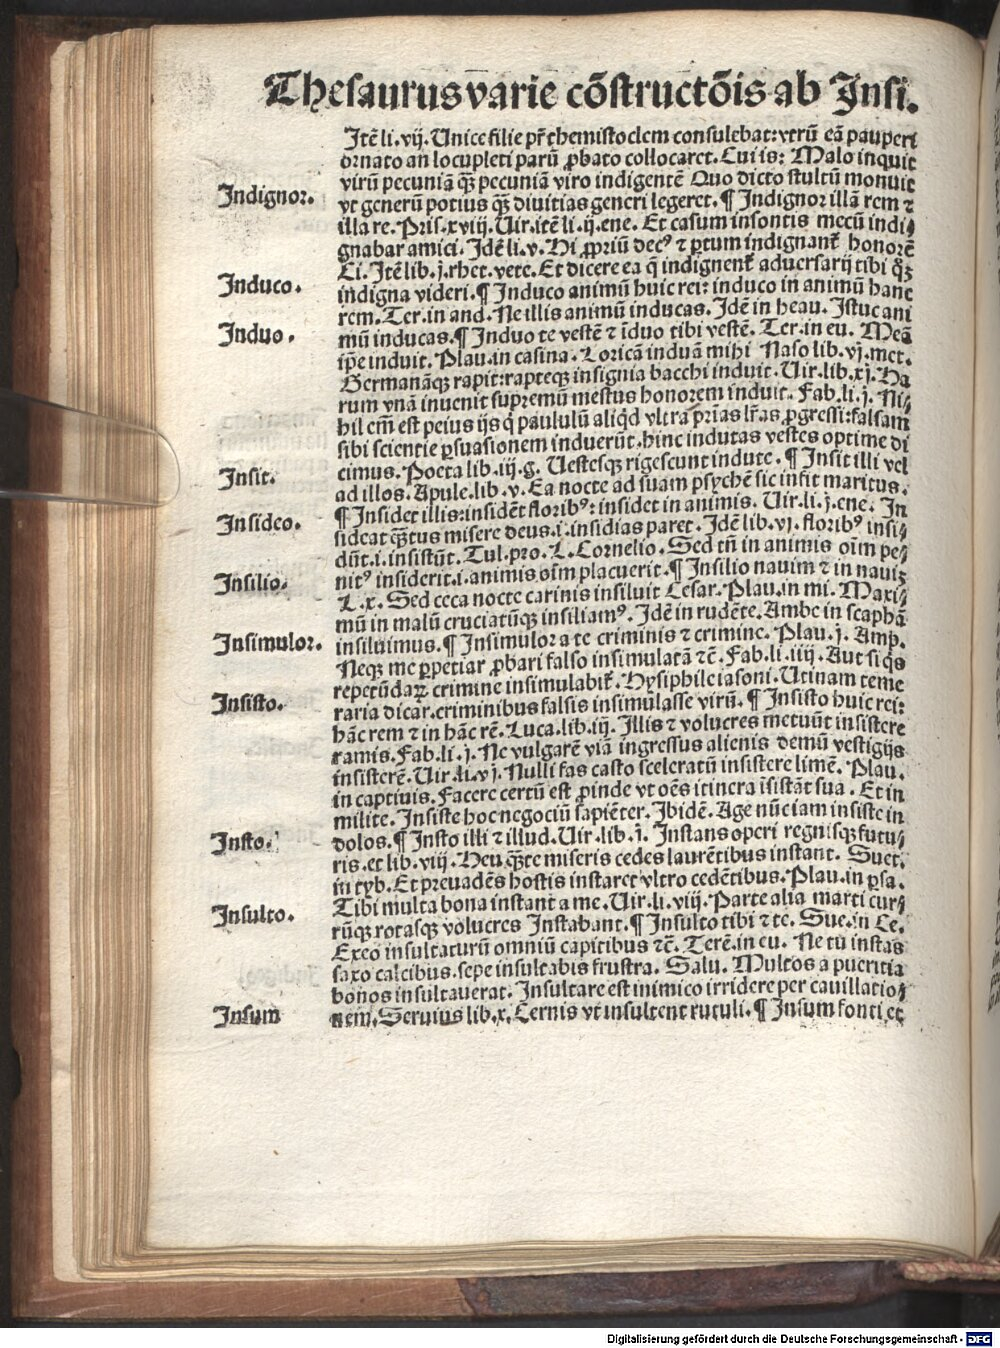 Thesaurus varie cōstructōis ab Insi.
Itē li. vij. Unice filie pr̄ themistoclem consulebat: vtrū eā pauperi
ornato an locupleti parū ꝓbato collocaret. Cui is: Malo inquit
virū pecuniā qꝫ pecuniā viro indigentē Quo dicto stultū monuit
Indignor.
vt generū potius qꝫ diuitias generi legeret. ¶ Indignor illā rem ⁊
illa re. Pris. xviij. Uir. itē li. ij. ene. Et casum insontis mecū indi⸗
gnabar amici. Idē li. v. Hi ꝓpriū decꝰ ⁊ ꝑtum indignant᷑ honorē
Ci. Itē lib. j. rhet. vete. Et dicere ea q̄ indignent᷑ aduersarij tibi qͦꝫ
Induco.
indigna videri. ¶ Induco animū huic rei: induco in animū hanc
rem. Ter. in and. Ne illis animū inducas. Idē in heau. Istuc ani
Induo.
mū inducas. ¶ Induo te vestē ⁊ īduo tibi vestē. Ter. in eu. Meā
ip̄e induit. Plau. in casina. Loricā induā mihi Naso lib. vj. met.
Germanāqꝫ rapit: rapteqꝫ insignia bacchi induit. Uir. lib. xj. Ha
rum vnā inuenit supremū mestus honorem induit. Fab. li. j. Ni⸗
hil em̄ est peius ijs q̇ paululū aliqd̄ vltra pr̄ias lr̄as ꝓgressi: falsam
sibi scientie ꝑsuasionem induerūt. hinc indutas vestes optime di
Insit.
cimus. Poeta lib. iij. g. Uestesqꝫ rigescunt indute. ¶ Insit illi vel
ad illos. Apule. lib. v. Ea nocte ad suam psychē sic infit maritus.
Insideo.
¶ Insidet illis: insidēt floribꝰ: insidet in animis. Uir. li. j. ene. In
sideat qꝫtus misere deus. i. insidias paret. Idē lib. vj. floribꝰ insi⸗
dūt. i. insistūt. Tul. pro. L. Cornelio. Sed tn̄ in animis oīm pe⸗
Insilio.
nitꝰ insiderit. i. animis oīm placuerit. ¶ Insilio nauim ⁊ in nauiꝫ
L. x. Sed ceca nocte carinis insiluit Cesar. Plau. in mi. Maxi⸗
mū in malū cruciatūqꝫ insiliamꝰ. Idē in rudēte. Ambe in scaphā
Insimulor.
insiluimus. ¶ Insimulor a te criminis ⁊ crimine. Plau. j. Amp.
Neqꝫ me ꝑpetiar ꝓbari falso insimulatā ⁊c̄. Fab. li. iiij. Aut si q̇s
repetūdaꝝ crimine insimulabit᷑. Hysiphile iasoni. Utinam teme
Insisto.
raria dicar. criminibus falsis insimulasse virū. ¶ Insisto huic rei:
hāc rem ⁊ in hāc rē. Luca. lib. iij. Illis ⁊ volucres metuūt insistere
ramis. Fab. li. j. Ne vulgarē viā ingressus alienis demū vestigijs
insisterē. Uir. li. vj. Nulli fas casto sceleratū insistere limē. Plau.
in captiuis. Facere certū est ꝓinde vt oēs itinera īsistāt sua. Et in
milite. Insiste hoc negociū sapiēter. Ibidē. Age nūc iam insiste in
Insto.
dolos. ¶ Insto illi ⁊ illud. Uir. lib. j. Instans operi regnisqꝫ futu⸗
ris. et lib. viij. Heu qꝫte miseris cedes laurētibus instant. Suet.
in tyb. Et preuadēs hostis instaret vltro cedētibus. Plau. in ꝑsa.
Tibi multa bona instant a me. Uir. li. viij. Parte alia marti cur⸗
Insulto.
rūqꝫ rotasqꝫ volucres Instabant. ¶ Insulto tibi ⁊ te. Sue. in Ce.
Exeo insultaturū omniū capitibus ⁊c̄. Terē. in eu. Ne tu instas
saxo calcibus. sepe insultabis frustra. Salu. Multos a pueritia
bonos insultauerat. Insultare est inimico irridere per cauillatio⸗
Insum
nem. Seruius lib. x. Cernis vt insultent rutuli. ¶ Insum fonti et
Digitalisierung gefördert durch die Deutsche Forschungsgemeinschaft - DFG